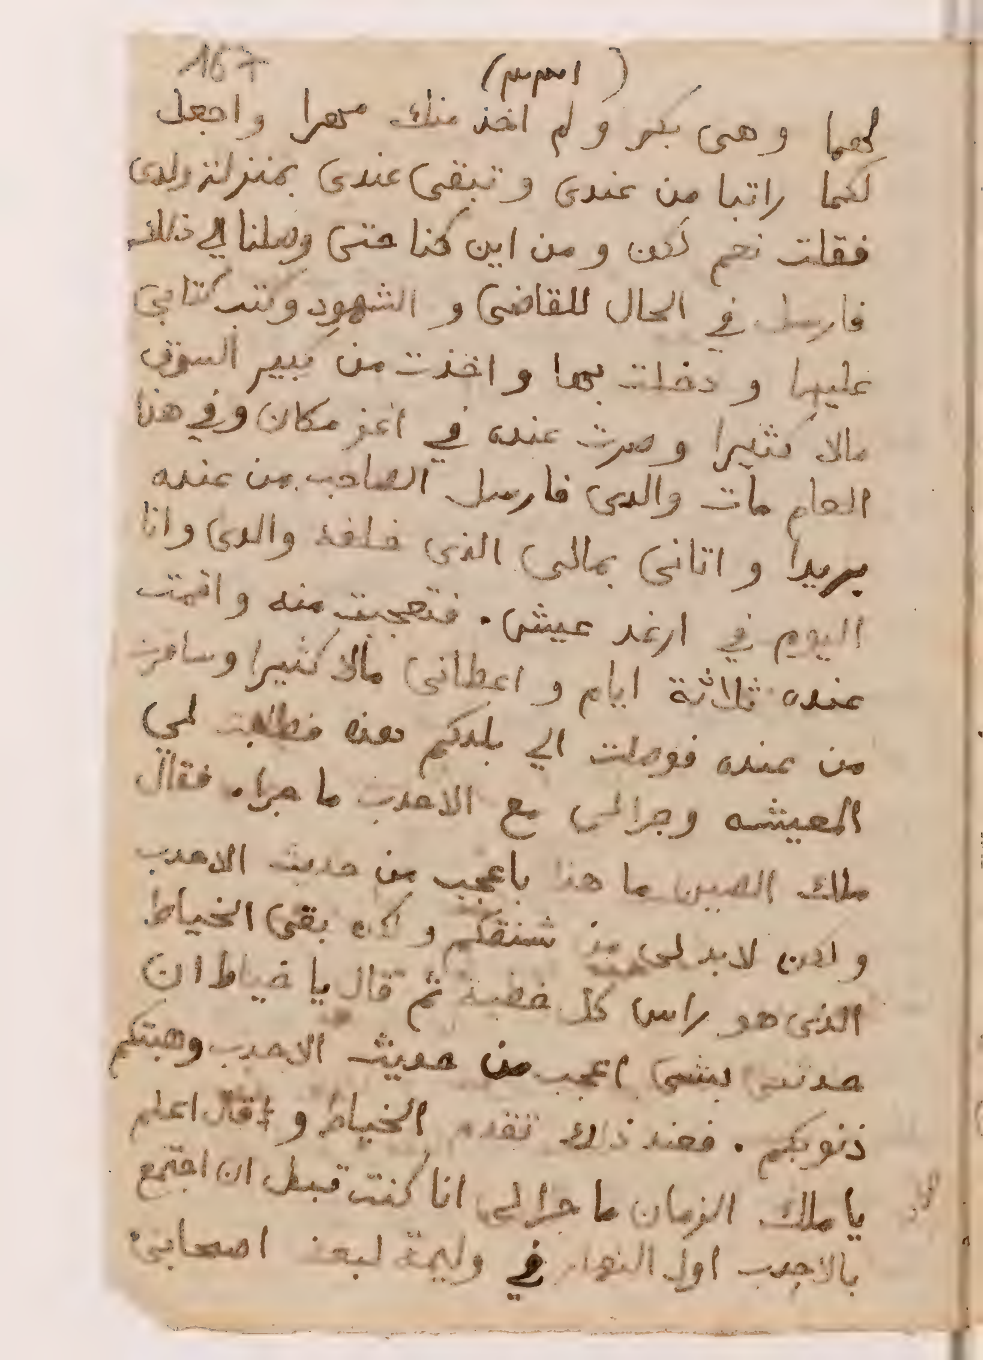 167
(١٣٣)
لهما وهى بكر ولم اخذ منك مهرا واجعل
لكما راتبا من عندى وتبقى عندى بمنزلة ولدى
فقلت نعم لكن ومن اين كنا حتى وصلنا الي ذلك
فارسل في الحال للقاضى و الشهود وكتب كتابي
عليها و دخلت بها و اخذت من كبير السوق
مالا كثيرا وصرت عنده في اعز مكان وفي هذا
العام مات والدى فارسل الصاحب من عنده
بريدا و اتانى بمالى الذى خلفه والدى وانا
اليوم في ارغد عيش. فتعجبت منه واقمت
عنده ثلاثة ايام و اعطانى مالا كثيرا وسافرت
من عنده فوصلت الي بلدكم هذه فطابت لي
المعيشه وجرالى مع الاحدب ما جرا. فقال
ملك الصين ما هذا باعجب من حديث الاحدب
ولكن لابد لى من شنقكم ولكن بقى الخياط
الذى هو راس كل خطية ثم قال يا خياط ان
حدثتنى بشى اعجب من حديث الاحدب وهبتكم
ذنوبكم. فعند ذلك تقدم الخياط و قال اعلم
يا ملك الزمان ما جرا لى انا كنت قبل ان اجتمع
بالاحدب اول النهار في وليمة لبعض اصحابى